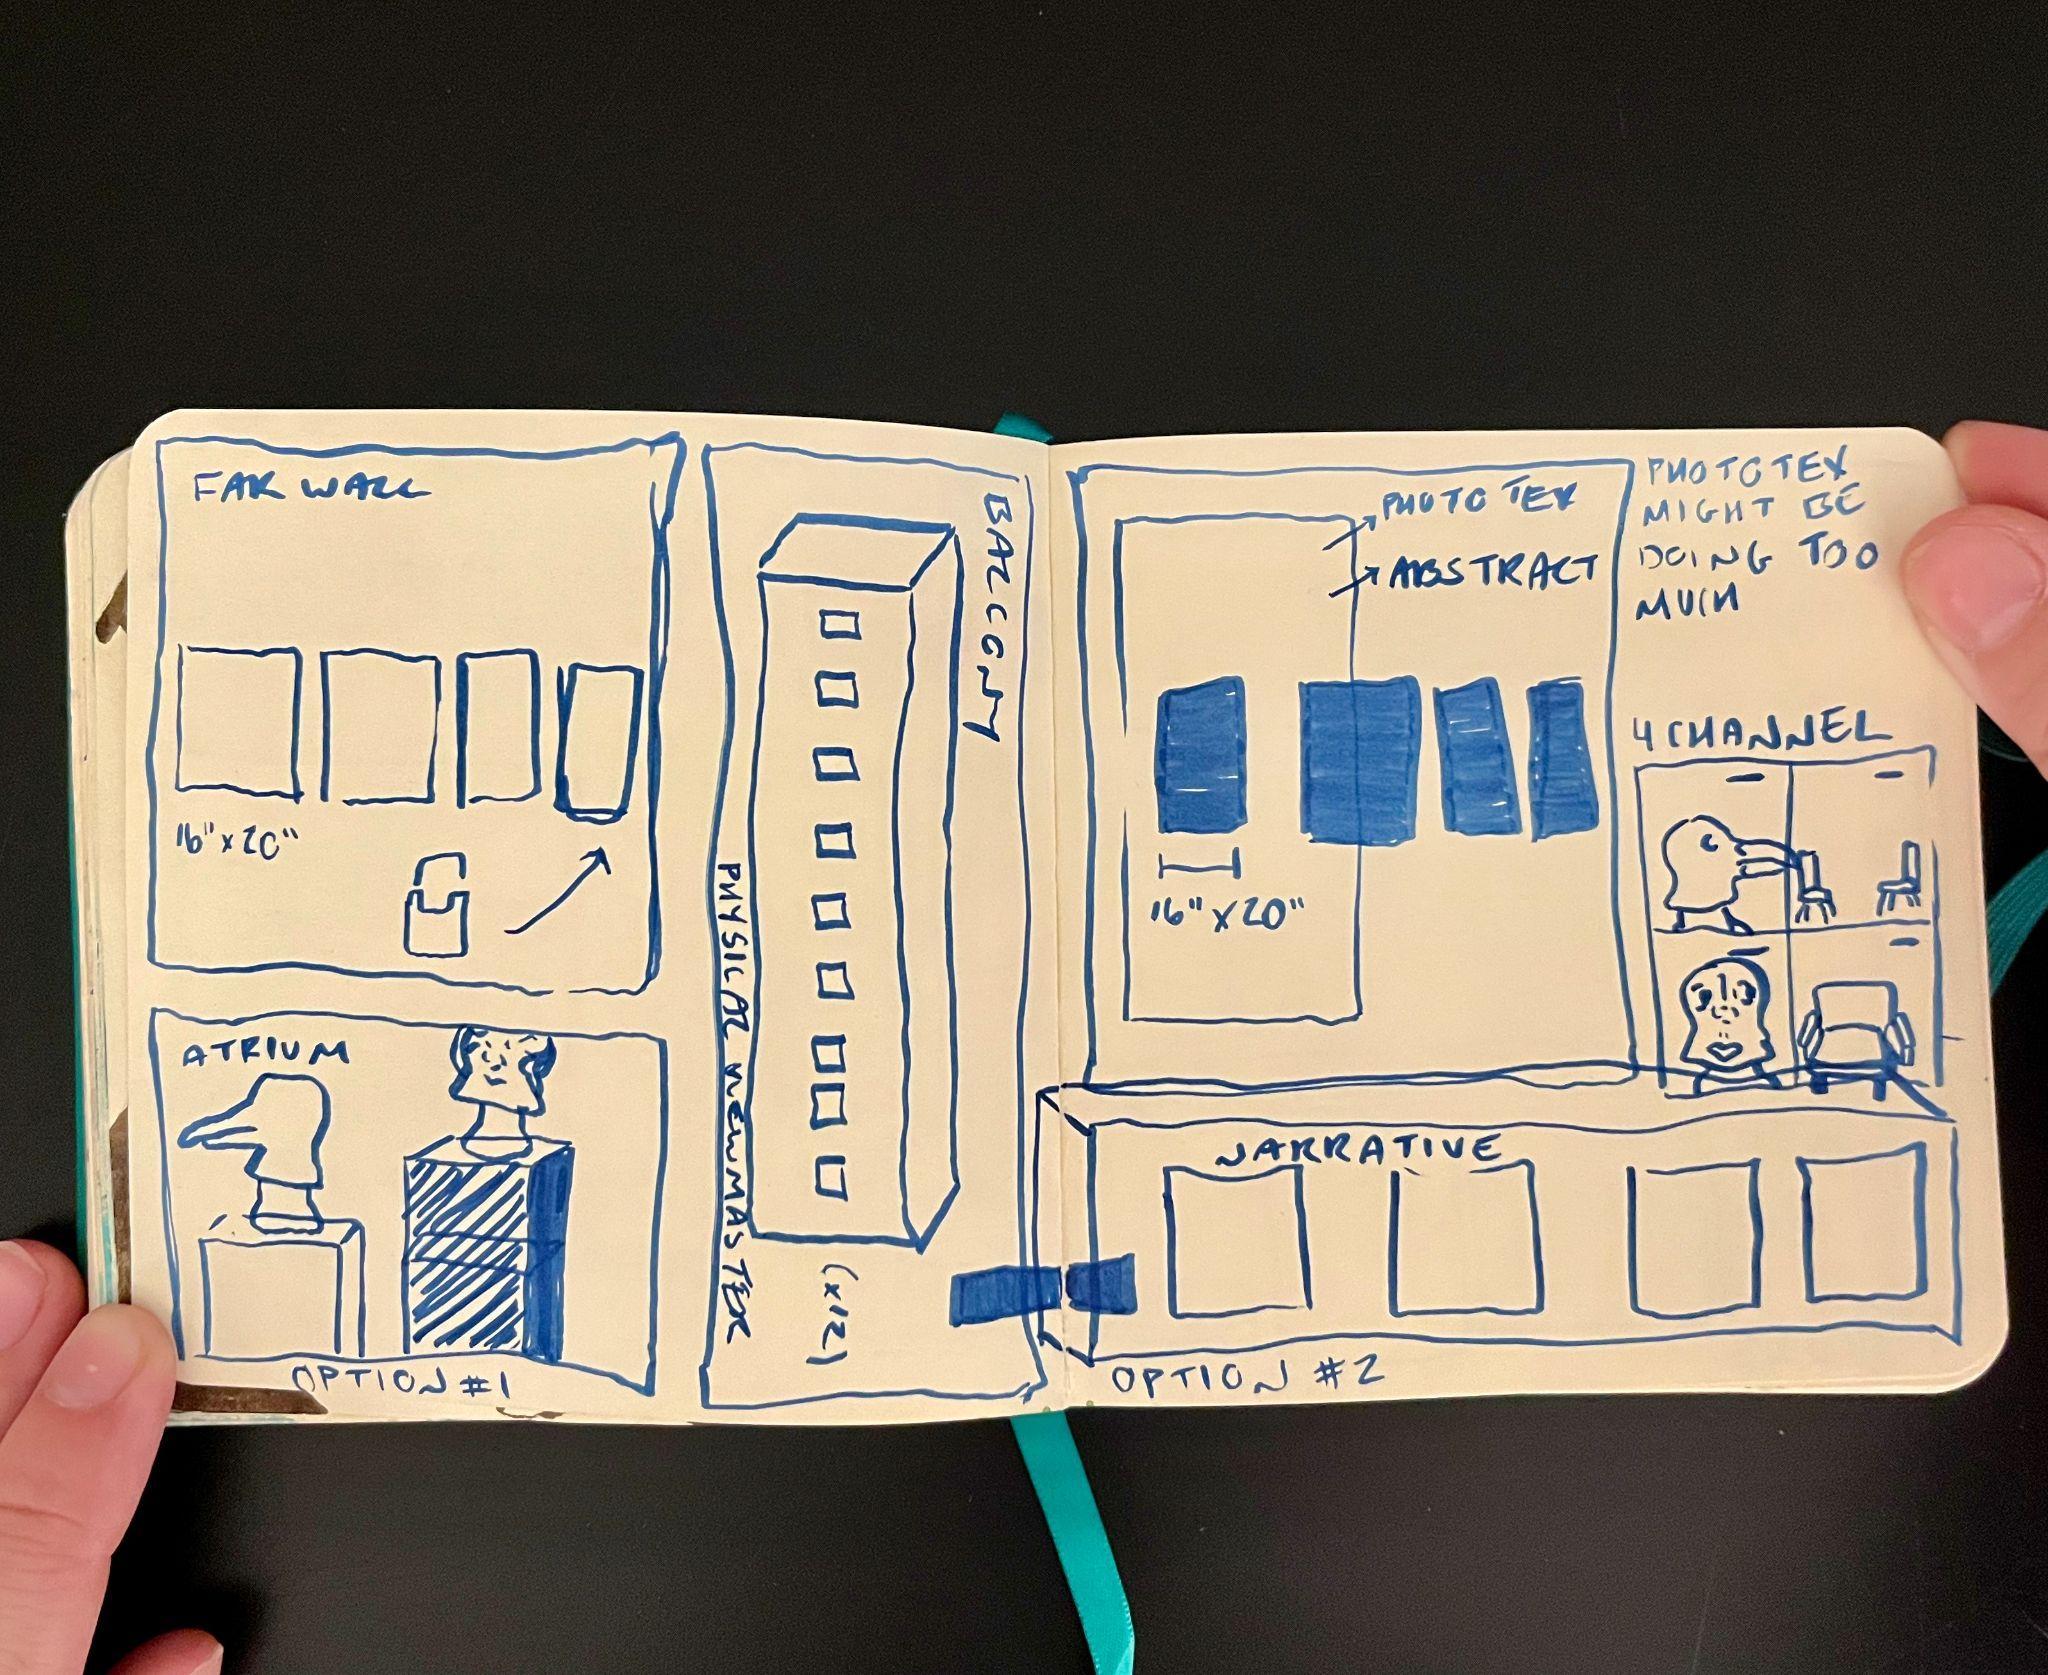 FAR WALL
16" x 20"
ATRIUM
OPTION #1
BALCONY
PHYSICAL VIEWMASTER
(x12)
PHOTO TEX
ABSTRACT
16" x 20"
PHOTOTEX
MIGHT BE
DOING TOO
MUCH
4 CHANNEL
NARRATIVE
OPTION #2